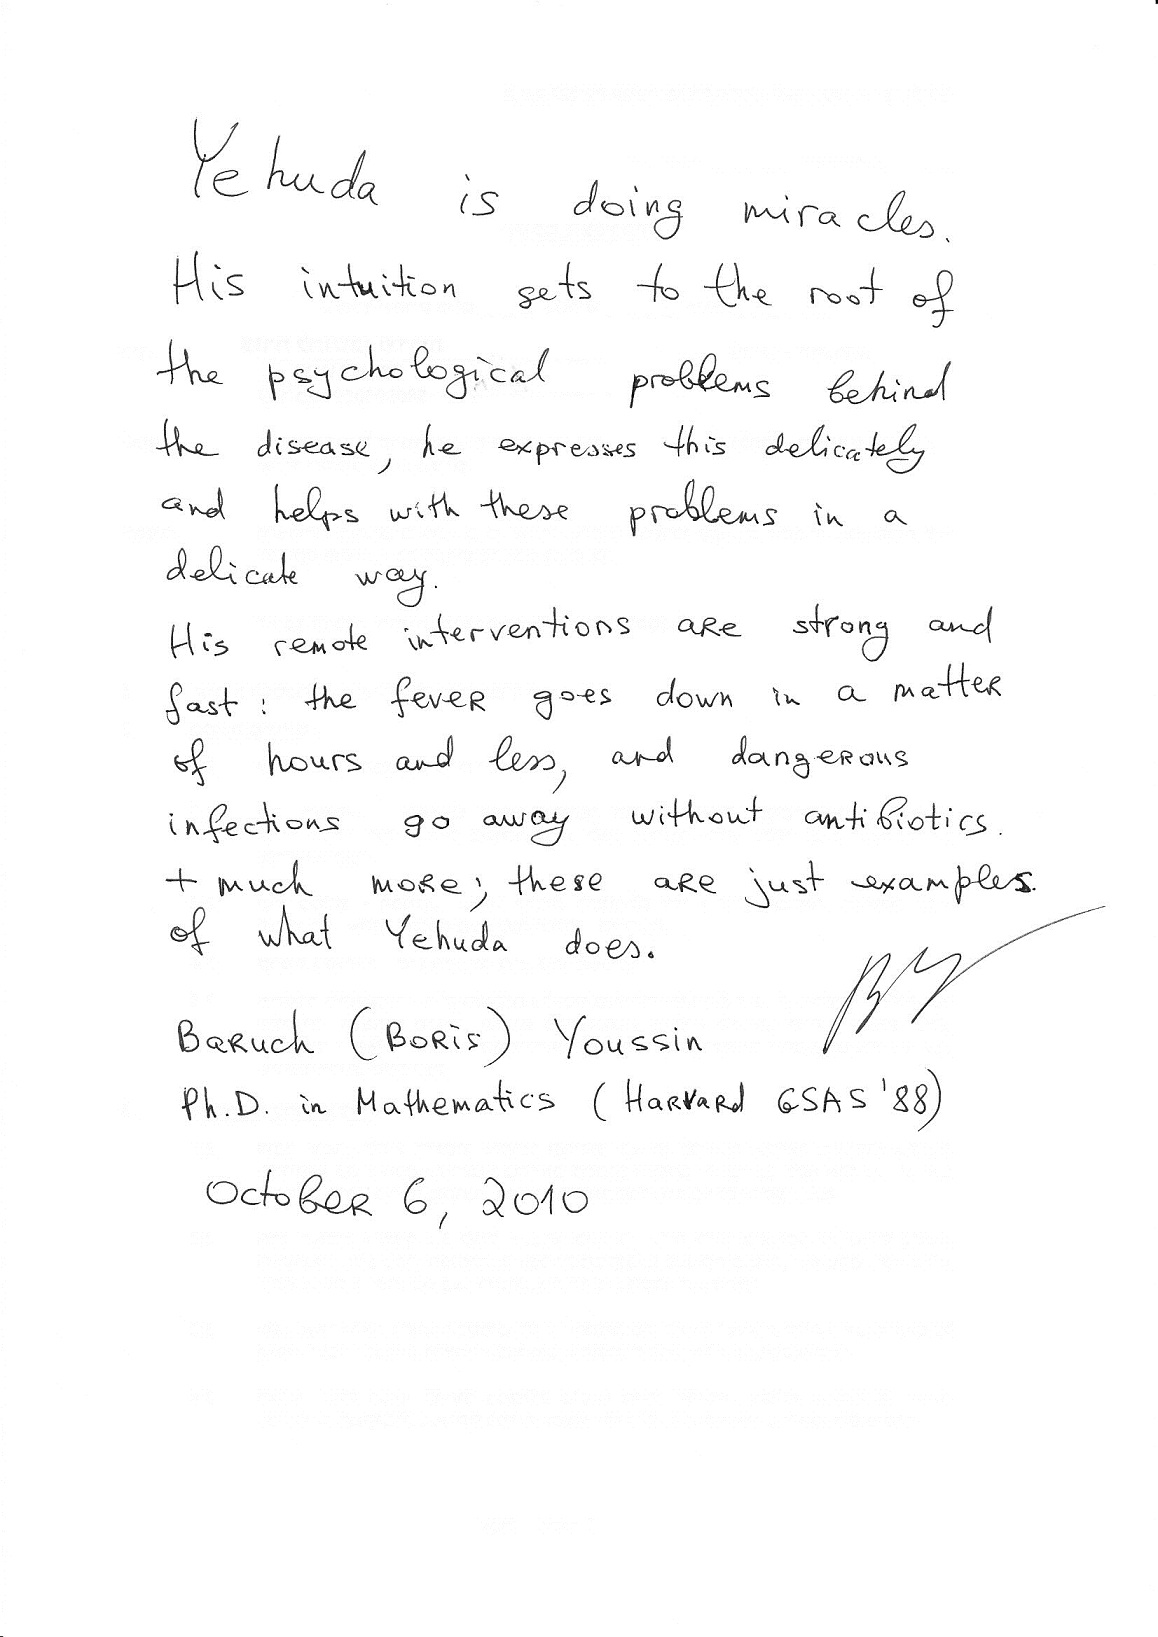 Yehuda is doing miracles.
His intuition gets to the root of
the psychological problems behind
the disease, he expresses this delicately
and helps with these problems in a
delicate way.
His remote interventions are strong and
fast: the fever goes down in a matter
of hours and less, and dangerous
infections go away without antibiotics.
+ much more; these are just examples.
of what Yehuda does.
Baruch (Boris) Youssin
Ph.D. in Mathematics (Harvard GSAS '88)
October 6, 2010